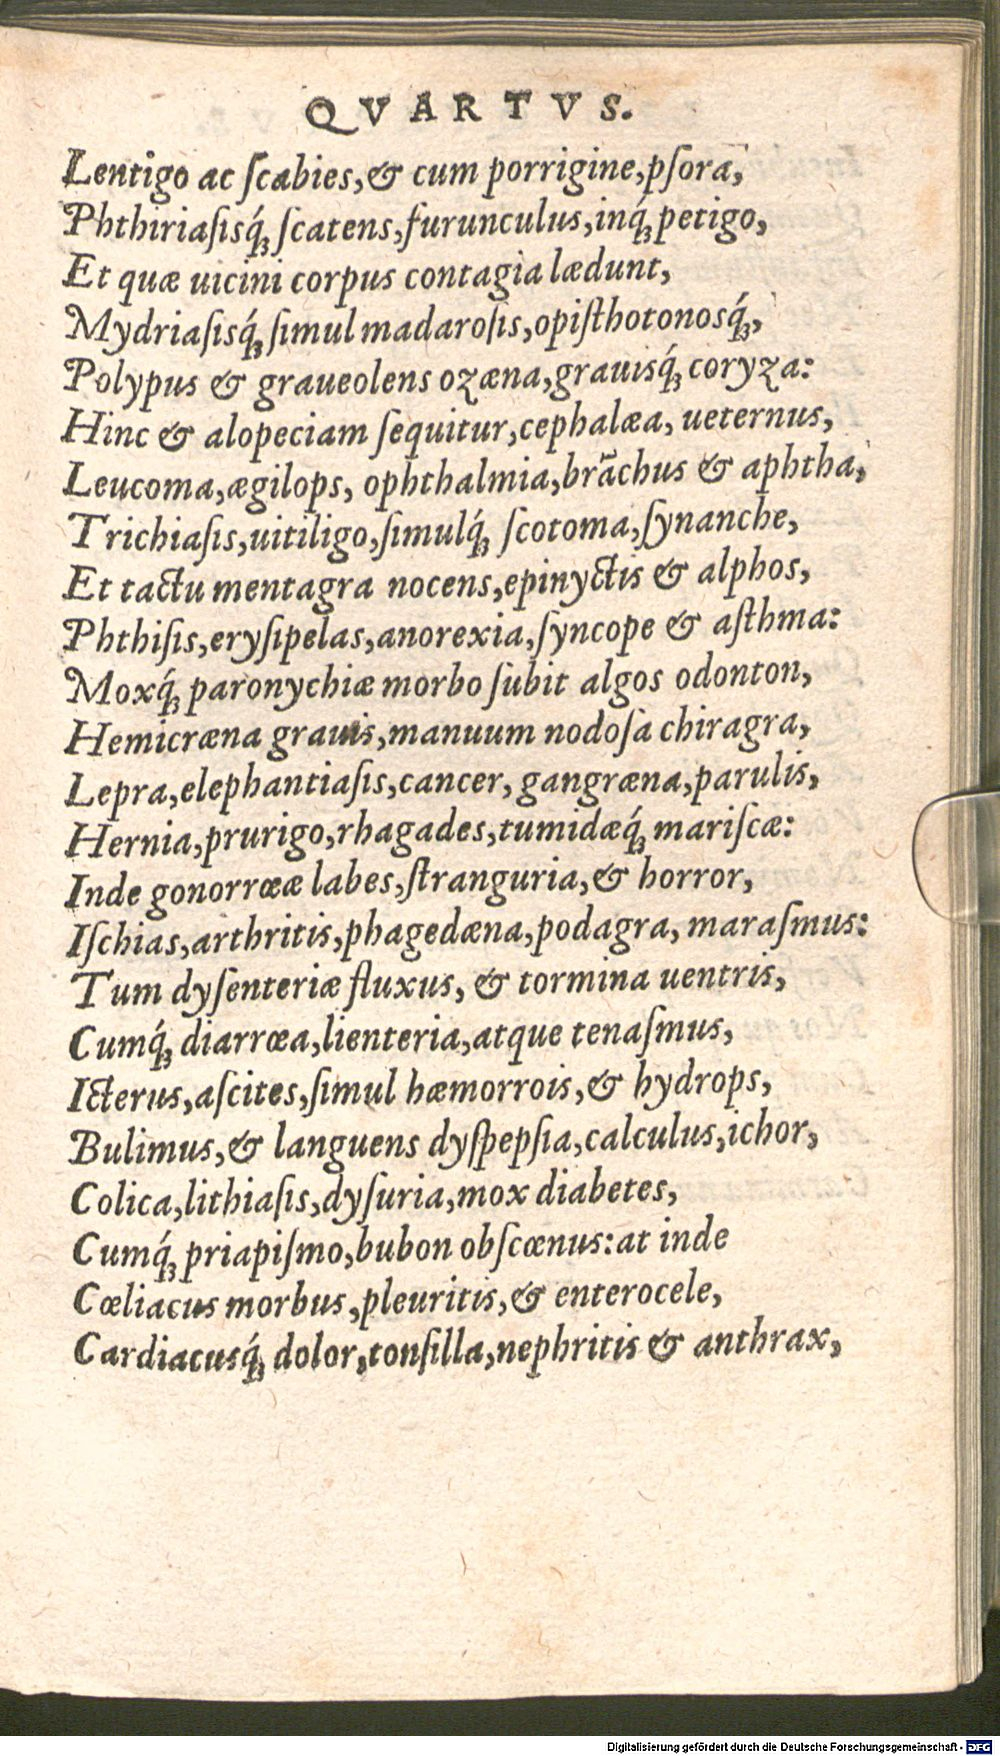 QVARTVS.
Lentigo ac ſcabies,& cum porrigine,pſora,
Phthiriaſisq́ꝫ ſcatens,furunculus,inq́ꝫ petigo,
Et quæ uicini corpus contagia lædunt,
Mydriaſisq́ꝫ ſimul madaroſis,opiſthotonosq́ꝫ,
Polypus & graueolens ozæna,grauisq́ꝫ coryza:
Hinc & alopeciam ſequitur,cephalæa, ueternus,
Leucoma,ægilops, ophthalmia,brāchus & aphtha,
Trichiaſis,uitiligo,ſimulq́ꝫ ſcotoma,ſynanche,
Et tactu mentagra nocens,epinyctis & alphos,
Phthiſis,eryſipelas,anorexia,ſyncope & aſthma:
Moxq́ꝫ paronychiæ morbo ſubit algos odonton,
Hemicræna grauis,manuum nodoſa chiragra,
Lepra,elephantiaſis,cancer, gangræna,parulis,
Hernia,prurigo,rhagades,tumidæq́ꝫ mariſcæ:
Inde gonorrœæ labes,ſtranguria,& horror,
Iſchias,arthritis,phagedæna,podagra, maraſmus:
Tum dyſenteriæ fluxus, & tormina uentris,
Cumq́ꝫ diarrœa,lienteria,atque tenaſmus,
Icterus,aſcites,ſimul hæmorrois,& hydrops,
Bulimus,& languens dyſpepſia,calculus,ichor,
Colica,lithiaſis,dyſuria,mox diabetes,
Cumq́ꝫ priapiſmo,bubon obſcœnus:at inde
Cœliacus morbus,pleuritis,& enterocele,
Cardiacusq́ꝫ dolor,tonſilla,nephritis & anthrax,
Digitalisierung gefördert durch die Deutsche Forschungsgemeinschaft - DFG